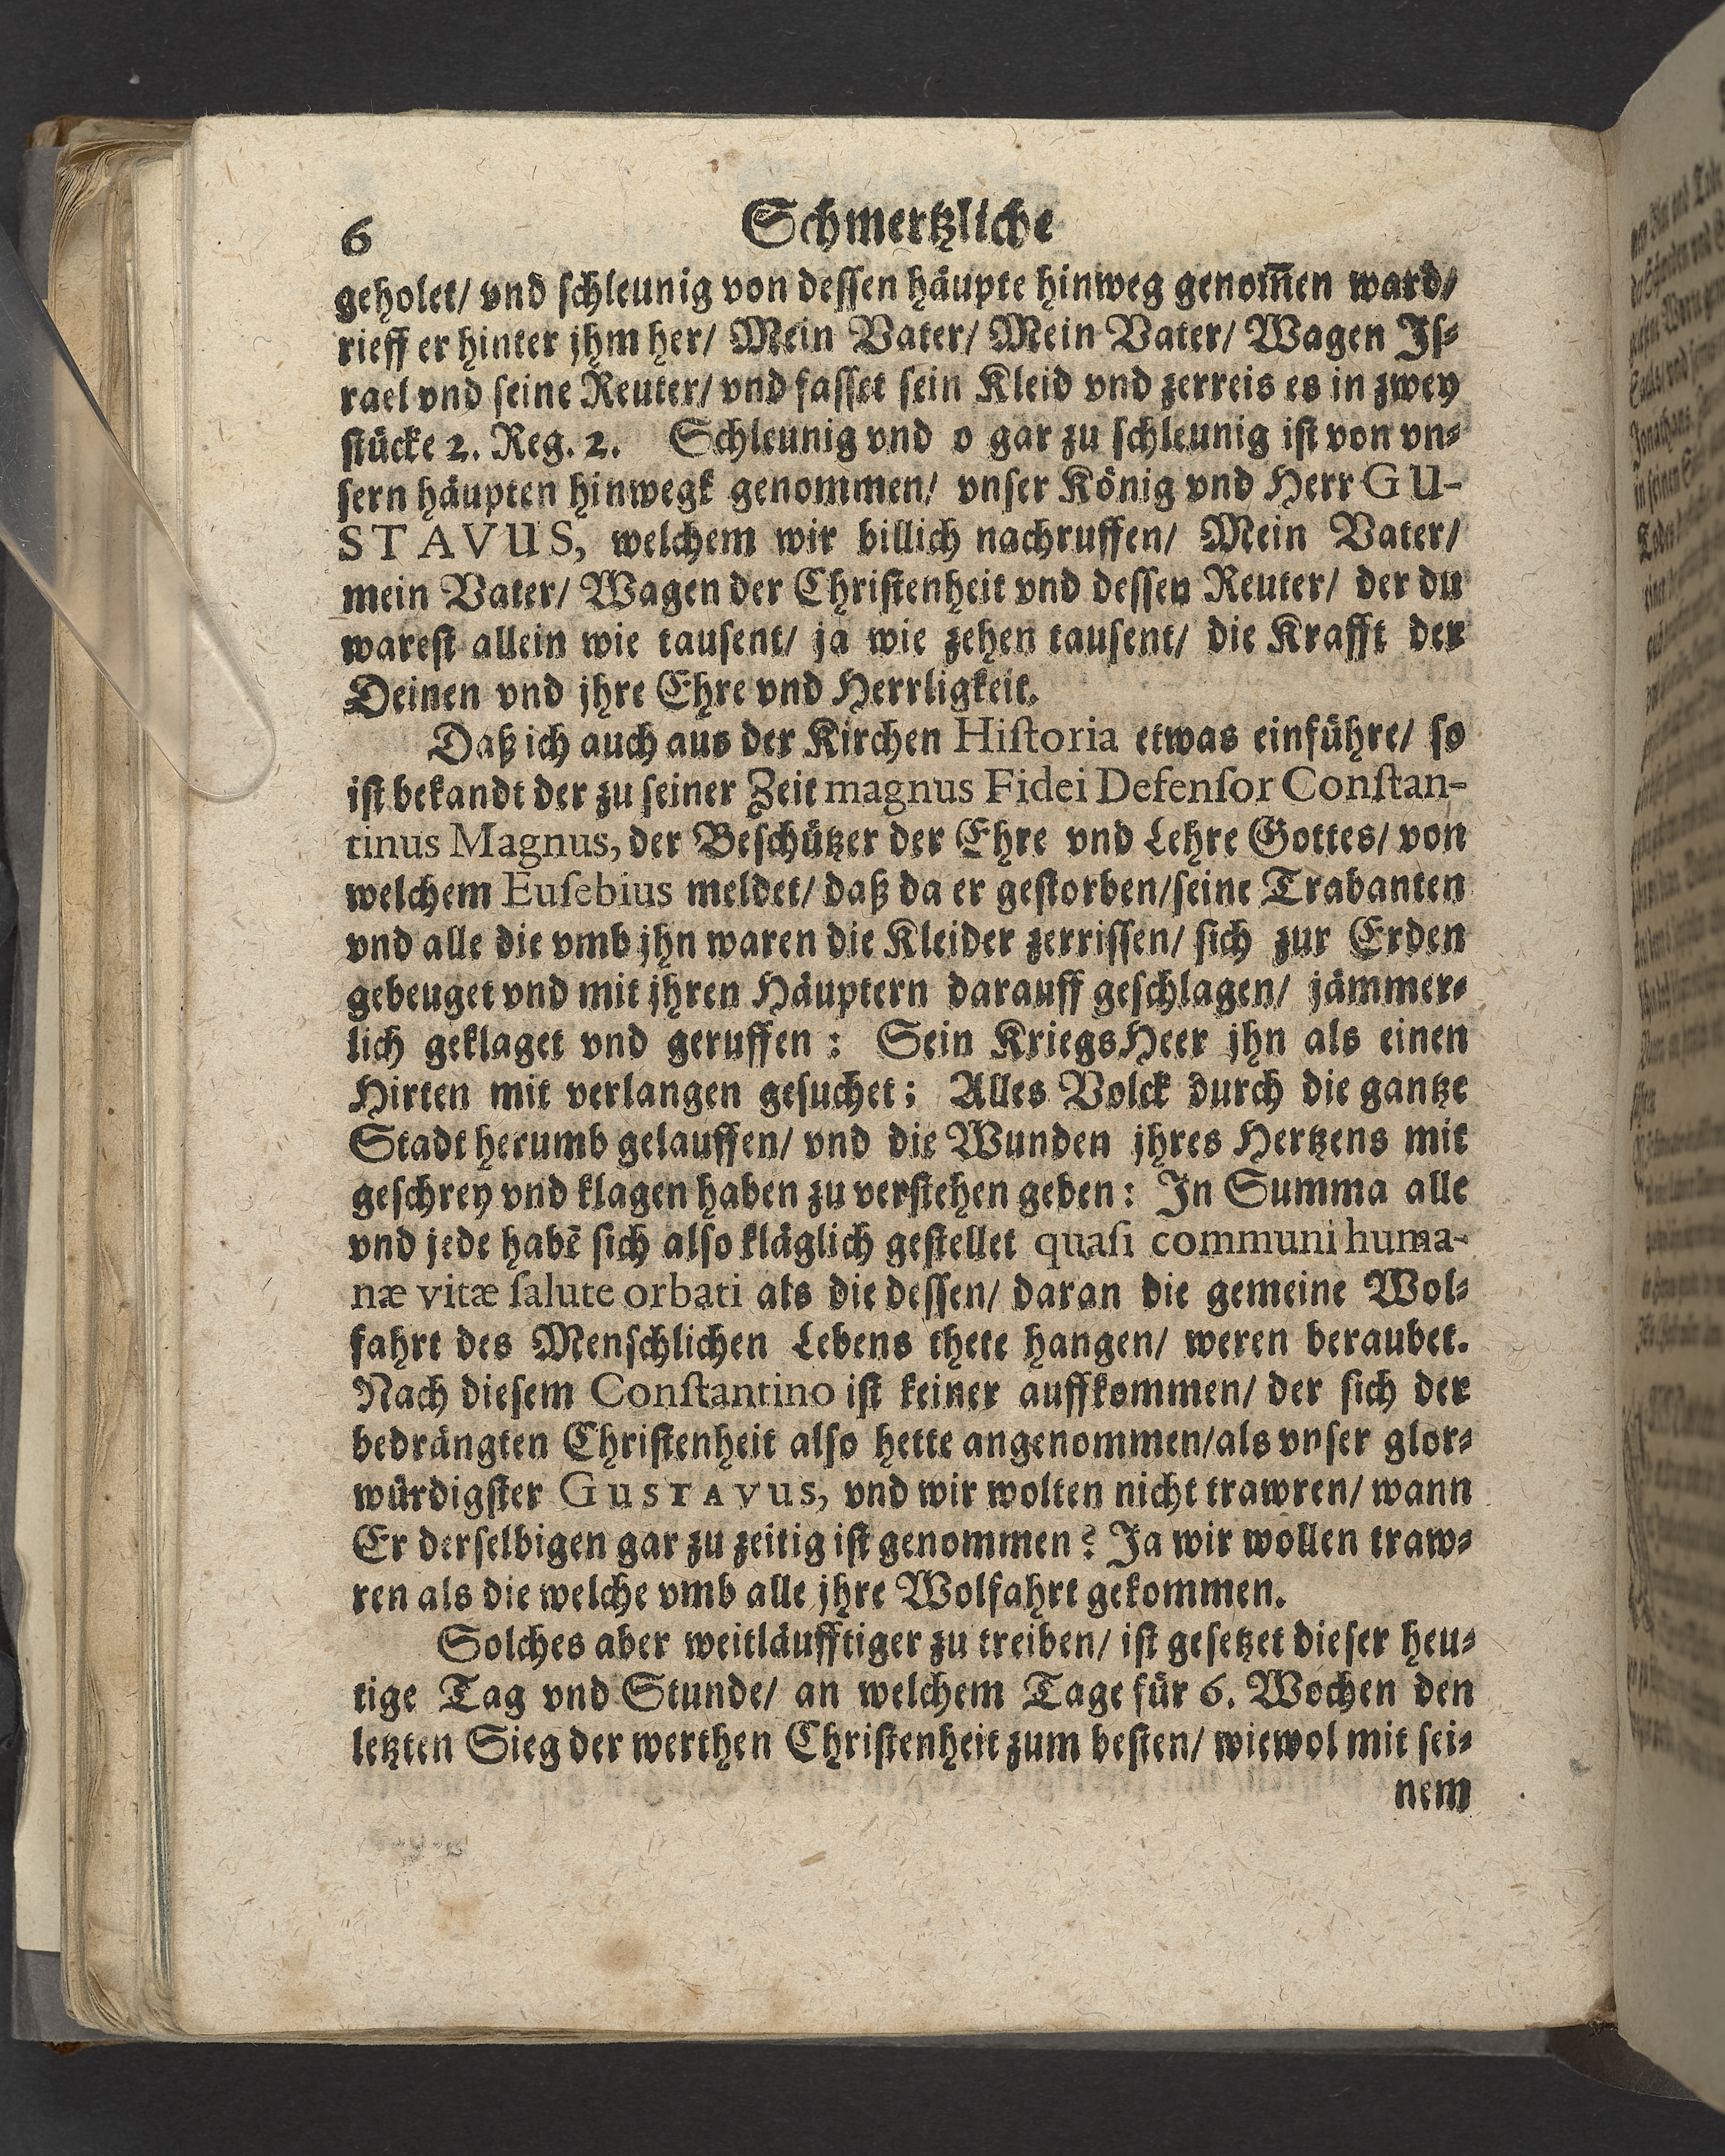 6
Schmertzliche
geholet/ vnd schleunig von dessen häupte hinweg genom̄en ward/
rieff er hinter jhm her/ Mein Vater/ Mein Vater/ Wagen Jſ⸗
rael vnd ſeine Reuter/ vnd faſſet ſein Kleid vnd zerreis es in zwey
ſtücke 2. Reg. 2. Schleunig vnd o gar zu ſchleunig iſt von vn⸗
ſern häupten hinwegk genommen/ vnſer König vnd Herr GU-
STAVUS, welchem wir billich nachruffen/ Mein Vater/
mein Vater/ Wagen der Chriſtenheit vnd deſſen Reuter/ der du
wareſt allein wie tauſent/ ja wie zehen tauſent/ die Krafft der
Deinen vnd jhre Ehre vnd Herrligkeit.
Daß ich auch aus der Kirchen Hiſtoria etwas einführe/ ſo
iſt bekandt der zu ſeiner Zeit magnus Fidei Defenſor Conſtan-
tinus Magnus, der Beſchützer der Ehre vnd Lehre Gottes/ von
welchem Euſebius meldet/ daß da er geſtorben/ſeine Trabanten
vnd alle die vmb jhn waren die Kleider zerriſſen/ ſich zur Erden
gebeuget vnd mit jhren Häuptern darauff geſchlagen/ jämmer⸗
lich geklaget vnd geruffen: Sein KriegsHeer jhn als einen
Hirten mit verlangen geſuchet; Alles Volck durch die gantze
Stadt herumb gelauffen/ vnd die Wunden jhres Hertzens mit
geſchrey vnd klagen haben zu verſtehen geben: In Summa alle
vnd jede habē ſich alſo kläglich geſtellet quaſi communi huma-
næ vitæ ſalute orbati als die deſſen/ daran die gemeine Wol⸗
fahrt des Menſchlichen Lebens thete hangen/ weren beraubet.
Nach dieſem Conſtantino iſt keiner auffkommen/ der ſich der
bedrängten Chriſtenheit alſo hette angenommen/als vnſer glor⸗
würdigſter GUSTAVUS, vnd wir wolten nicht trawren/ wann
Er derſelbigen gar zu zeitig iſt genommen? Ja wir wollen traw⸗
ren als die welche vmb alle jhre Wolfahrt gekommen.
Solches aber weitläufftiger zu treiben/ iſt geſetzet dieſer heu⸗
tige Tag vnd Stunde/ an welchem Tage für 6. Wochen den
letzten Sieg der werthen Chriſtenheit zum beſten/ wiewol mit ſei⸗
nem